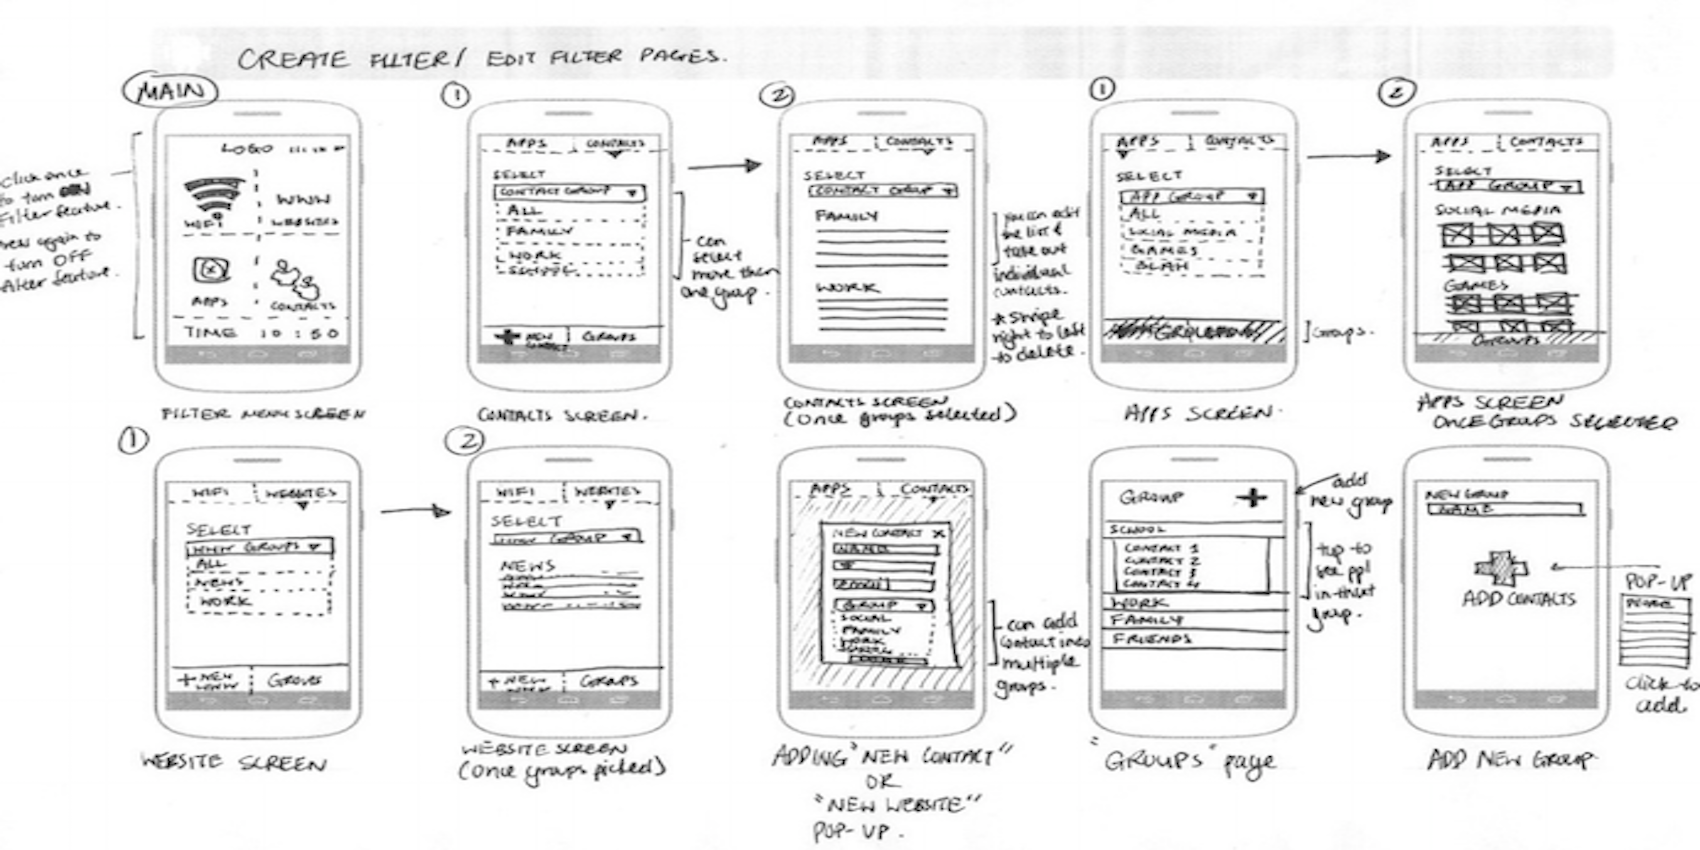 CREATE FILTER / EDIT FILTER PAGES.
MAIN
Click once
to turn ON
Filter feature.
again to
turn OFF
filter feature.
LOGO
WIFI
WWW
WEBSITES
APPS
CONTACTS
TIME 10:50
FILTER MENU SCREEN
1
APPS CONTACTS
SELECT
CONTACT GROUP
ALL
FAMILY
WORK
SCHOOL
+ NEW CONTACT GROUPS
can
select
more then
one group.
CONTACTS SCREEN.
2
APPS CONTACTS
SELECT
CONTACT GROUP
FAMILY
WORK
you can edit
the list &
take out
individual
contacts.
* Swipe
right to left
to delete.
CONTACTS SCREEN
(once groups selected)
1
APPS CONTACTS
SELECT
APP GROUP
ALL
SOCIAL MEDIA
GAMES
BLAH
Groups.
APPS SCREEN.
2
APPS CONTACTS
SELECT
APP GROUP
SOCIAL MEDIA
GAMES
GROUPS
APPS SCREEN
ONCE GROUPS SELECTED
1
WIFI WEBSITES
SELECT
WWW GROUPS
ALL
NEWS
WORK
+ NEW WWW GROUPS
WEBSITE SCREEN
2
WIFI WEBSITES
SELECT
WWW GROUP
NEWS
+ NEW WWW GROUPS
WEBSITE SCREEN
(once groups picked)
APPS CONTACTS
NEW CONTACT X
NAME
EMAIL
GROUP
SOCIAL
FAMILY
WORK
SCHOOL
can add
contact into
multiple
groups.
ADDING "NEW CONTACT"
OR
"NEW WEBSITE"
POP-UP.
GROUP +
SCHOOL
CONTACT 1
CONTACT 2
CONTACT 3
CONTACT 4
WORK
FAMILY
FRIENDS
add
new group
tap to
see ppl
in that
group.
"GROUPS" page
NEW GROUP
NAME
ADD CONTACTS
POP-UP
PEOPLE
click to
add
ADD NEW GROUP